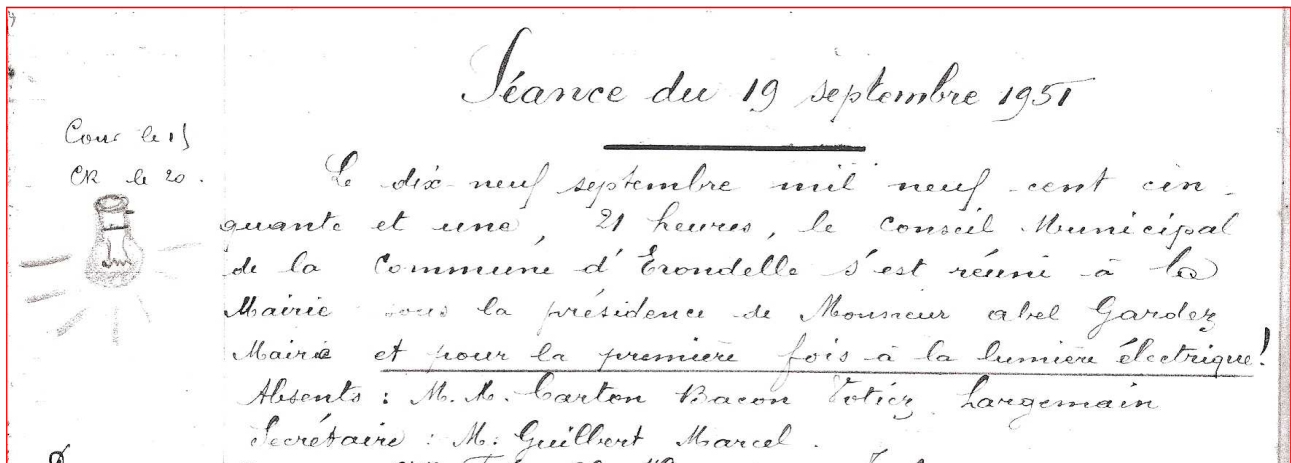 Séance du 19 septembre 1951
CR le 20.
Le dix-neuf septembre mil neuf cent cin-
quante et une, 21 heures, le Conseil Municipal
de la Commune d'Erondelle s'est réuni à la
Mairie sous la présidence de Monsieur Abel Gardez
Mairie et pour la première fois à la lumière électrique!
Absents : M.M. Carton Bacon Largemain
Secrétaire : M. Guilbert Marcel.